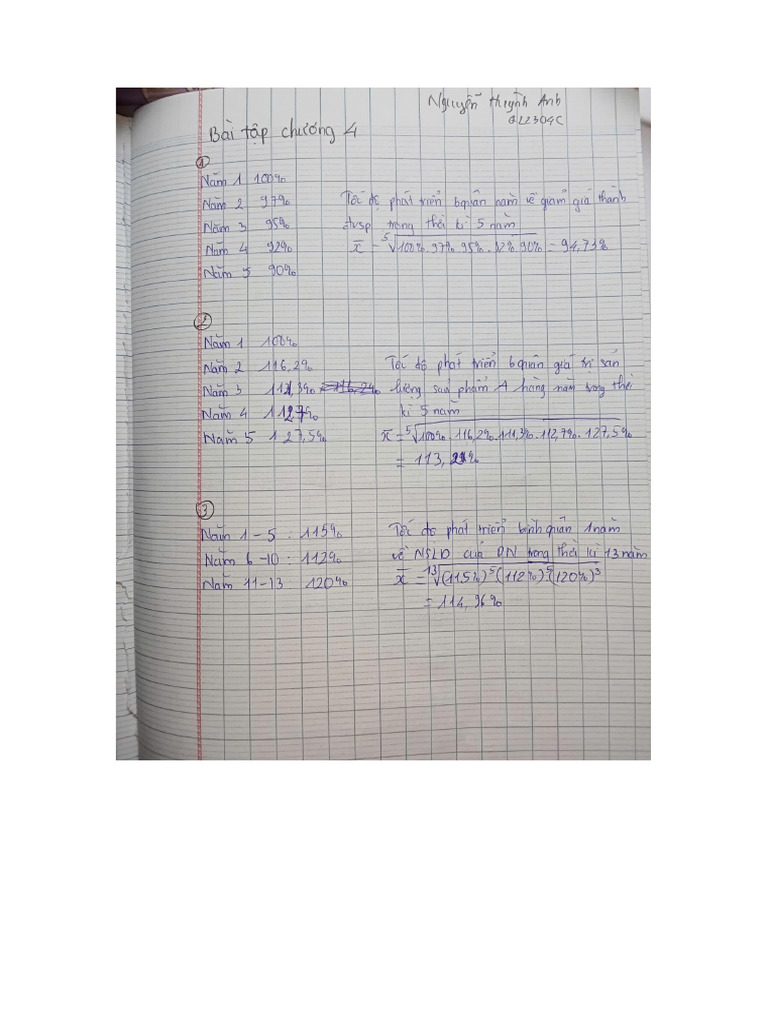 Nguyễn Huỳnh Anh
QL2304C
Bài tập chương 4
①
Năm 1 100%
Năm 2 97%
Năm 3 95%
Năm 4 92%
Năm 5 90%
Tốc độ phát triển bquân năm về giảm giá thành
đvsp trong thời kì 5 năm
x̄ = ⁵√100%.97%.95%.92%.90% = 94,73%
②
Năm 1 100%
Năm 2 116,2%
Năm 3 111,3%
Năm 4 112,7%
Năm 5 127,5%
Tốc độ phát triển bquân giá trị sản
lượng sản phẩm A hàng năm trong thời
kì 5 năm
x̄ = ⁵√100%.116,2%.111,3%.112,7%.127,5%
= 113,21%
③
Năm 1-5 : 115%
Năm 6-10 : 112%
Năm 11-13 120%
Tốc độ phát triển bình quân 1 năm
về NSLĐ của DN trong thời kì 13 năm
x̄ = ¹³√(115%)⁵(112%)⁵(120%)³
= 114,96%